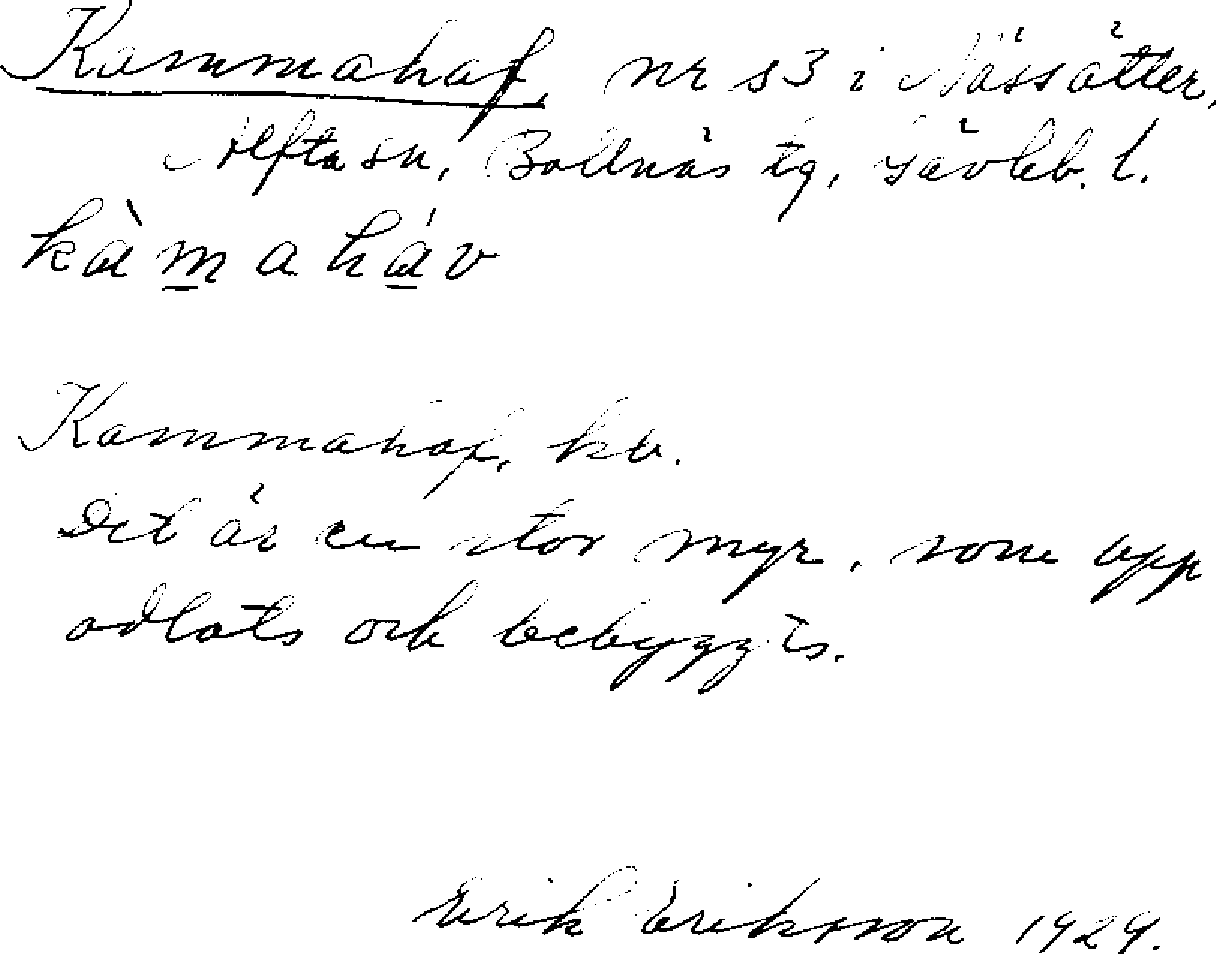 Kammahaf, nr s3 i Nässätter,
Alfta sn, Bollnäs tg, Gävleb. l.
kàmaháv
Kammahaf, kb.
Det är en stor myr, som upp
odlats och bebyggts.
Erik Eriksson 1929.